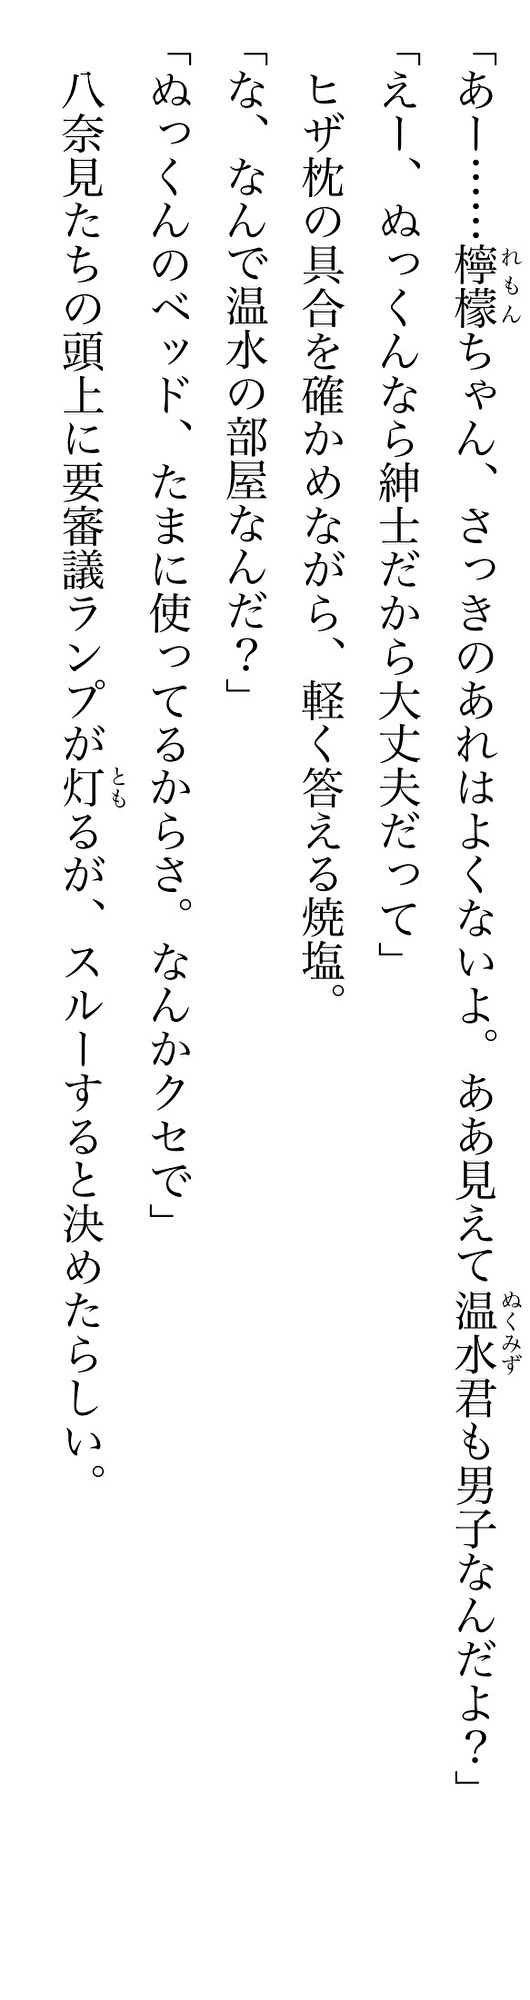 「あー……檸檬ちゃん、さっきのあれはよくないよ。ああ見えて温水君も男子なんだよ？」
れもん
ぬくみず
「えー、ぬっくんなら紳士だから大丈夫だって」
ヒザ枕の具合を確かめながら、軽く答える焼塩。
「な、なんで温水の部屋なんだ？」
「ぬっくんのベッド、たまに使ってるからさ。なんかクセで」
八奈見たちの頭上に要審議ランプが灯るが、スルーすると決めたらしい。
とも